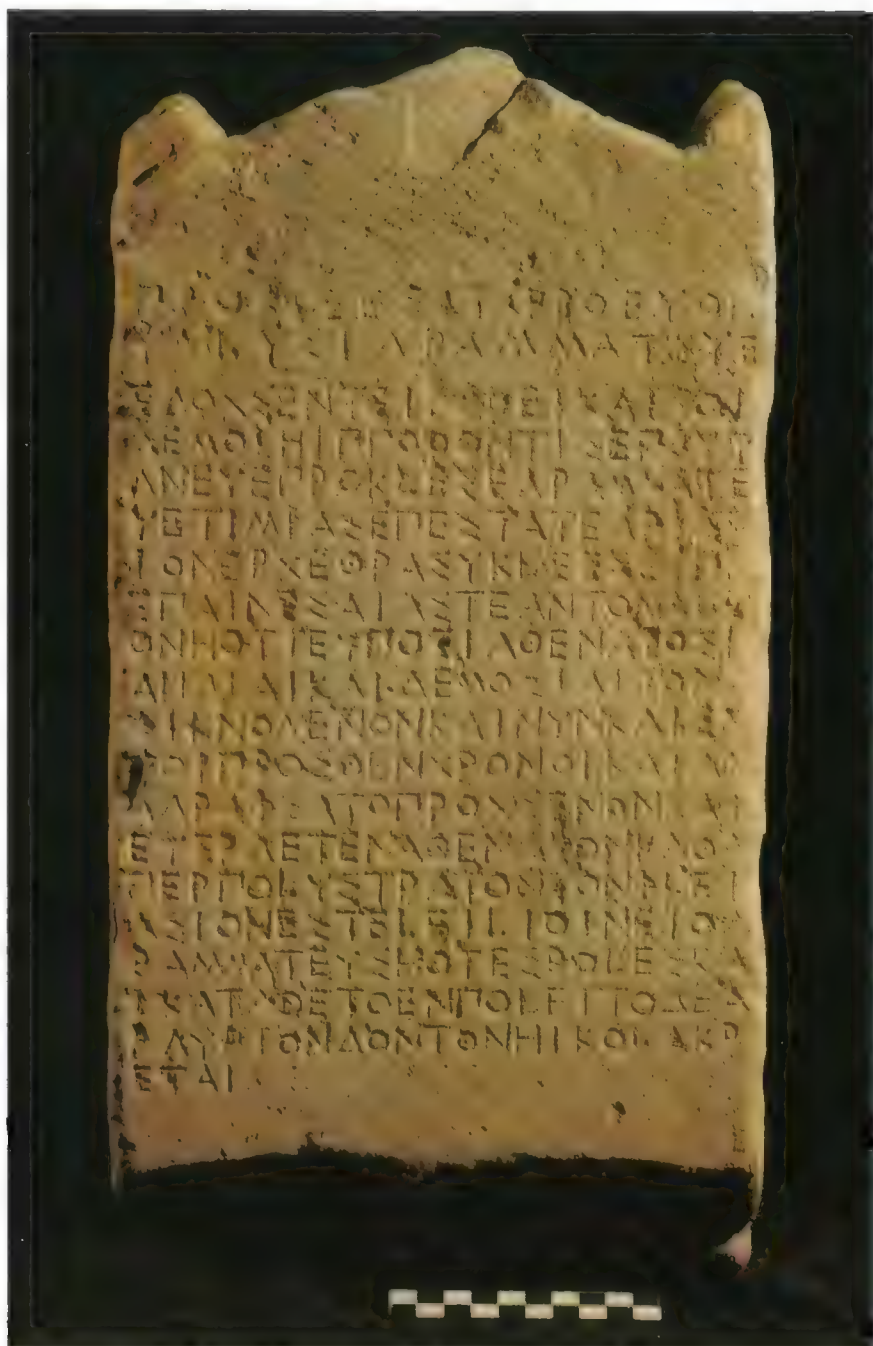 ΠΡΟΚΛΕΕΣ ΑΤΑΡΒΟ ΕΥΟΝ
ΥΜΕΥΣ ΕΓΡΑΜΜΑΤΕΥΕ
ΕΔΟΧΣΕΝΤΕΙΒΟΛΕΙΚΑΙΤΟΙ
ΔΕΜΟΙΗΙΠΠΟΘΟΝΤΙΣΕΠΡΥΤ
ΑΝΕΥΕΠΡΟΚΛΕΣΕΓΡΑΜΜΑΤΕ
ΥΕΤΙΜΙΑΣΕΠΕΣΤΑΤΕΑΡΙΣΤ
ΙΟΝΕΡΧΕΘΡΑΣΥΚΛΕΣΕΙΠΕ
ΕΠΑΙΝΕΣΑΙΑΣΤΕΑΝΤΟΝΑΛΕ
ΟΝΗΟΤΙΕΥΠΟΕΙΑΘΕΝΑΙΟΣΚ
ΑΙΙΔΙΑΙΚΑΙΔΕΜΟΣΙΑΙΤΟΝΑ
ΦΙΚΝΟΜΕΝΟΝΚΑΙΝΥΝΚΑΙΕΝ
ΤΟΙΠΡΟΣΘΕΝΧΡΟΝΟΙΚΑΙΑΝ
ΑΓΡΑΦΣΑΤΟΠΡΟΧΣΕΝΟΝΚΑΙ
ΕΥΕΡΓΕΤΕΝΑΘΕΝΑΙΟΝΚΑΘΑ
ΠΕΡΠΟΛΥΣΤΡΑΤΟΝΤΟΝΦΛΕΙ
ΑΣΙΟΝΕΣΤΕΛΕΙΛΙΘΙΝΕΙΟΓ
ΡΑΜΜΑΤΕΥΣΗΟΤΕΣΒΟΛΕΣΚΑ
ΙΚΑΤΑΘΕΤΟΕΝΠΟΛΕΙΤΟΔΕΑ
ΡΓΥΡΙΟΝΔΟΝΤΟΝΗΙΚΟΛΑΚΡ
ΕΤΑΙ